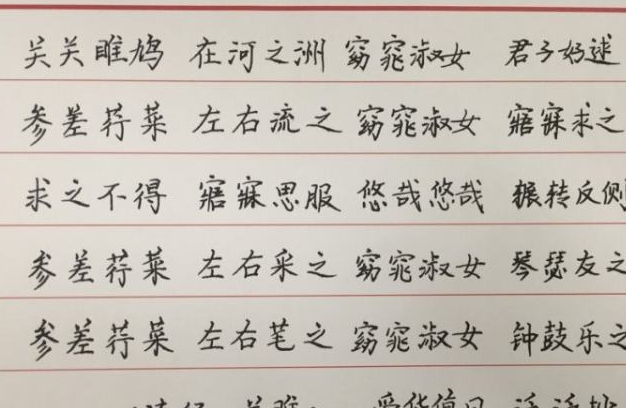 关关雎鸠 在河之洲 窈窕淑女 君子好逑
参差荇菜 左右流之 窈窕淑女 寤寐求之
求之不得 寤寐思服 悠哉悠哉 辗转反侧
参差荇菜 左右采之 窈窕淑女 琴瑟友之
参差荇菜 左右笔之 窈窕淑女 钟鼓乐之